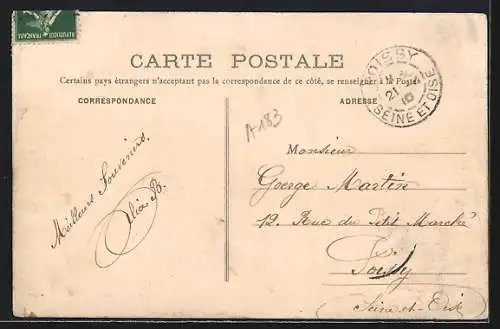 REPUBLIQUE FRANÇAISE
CARTE POSTALE
Certains pays étrangers n'acceptant pas la correspondance de ce côté, se renseigner à la Poste
CORRESPONDANCE
ADRESSE
POISSY
21
10
SEINE ET OISE
A183
Meilleurs Souvenirs.
Monsieur
Goerge Martin
12. Rue du Petit Marché
Poissy
Seine-et-Oise